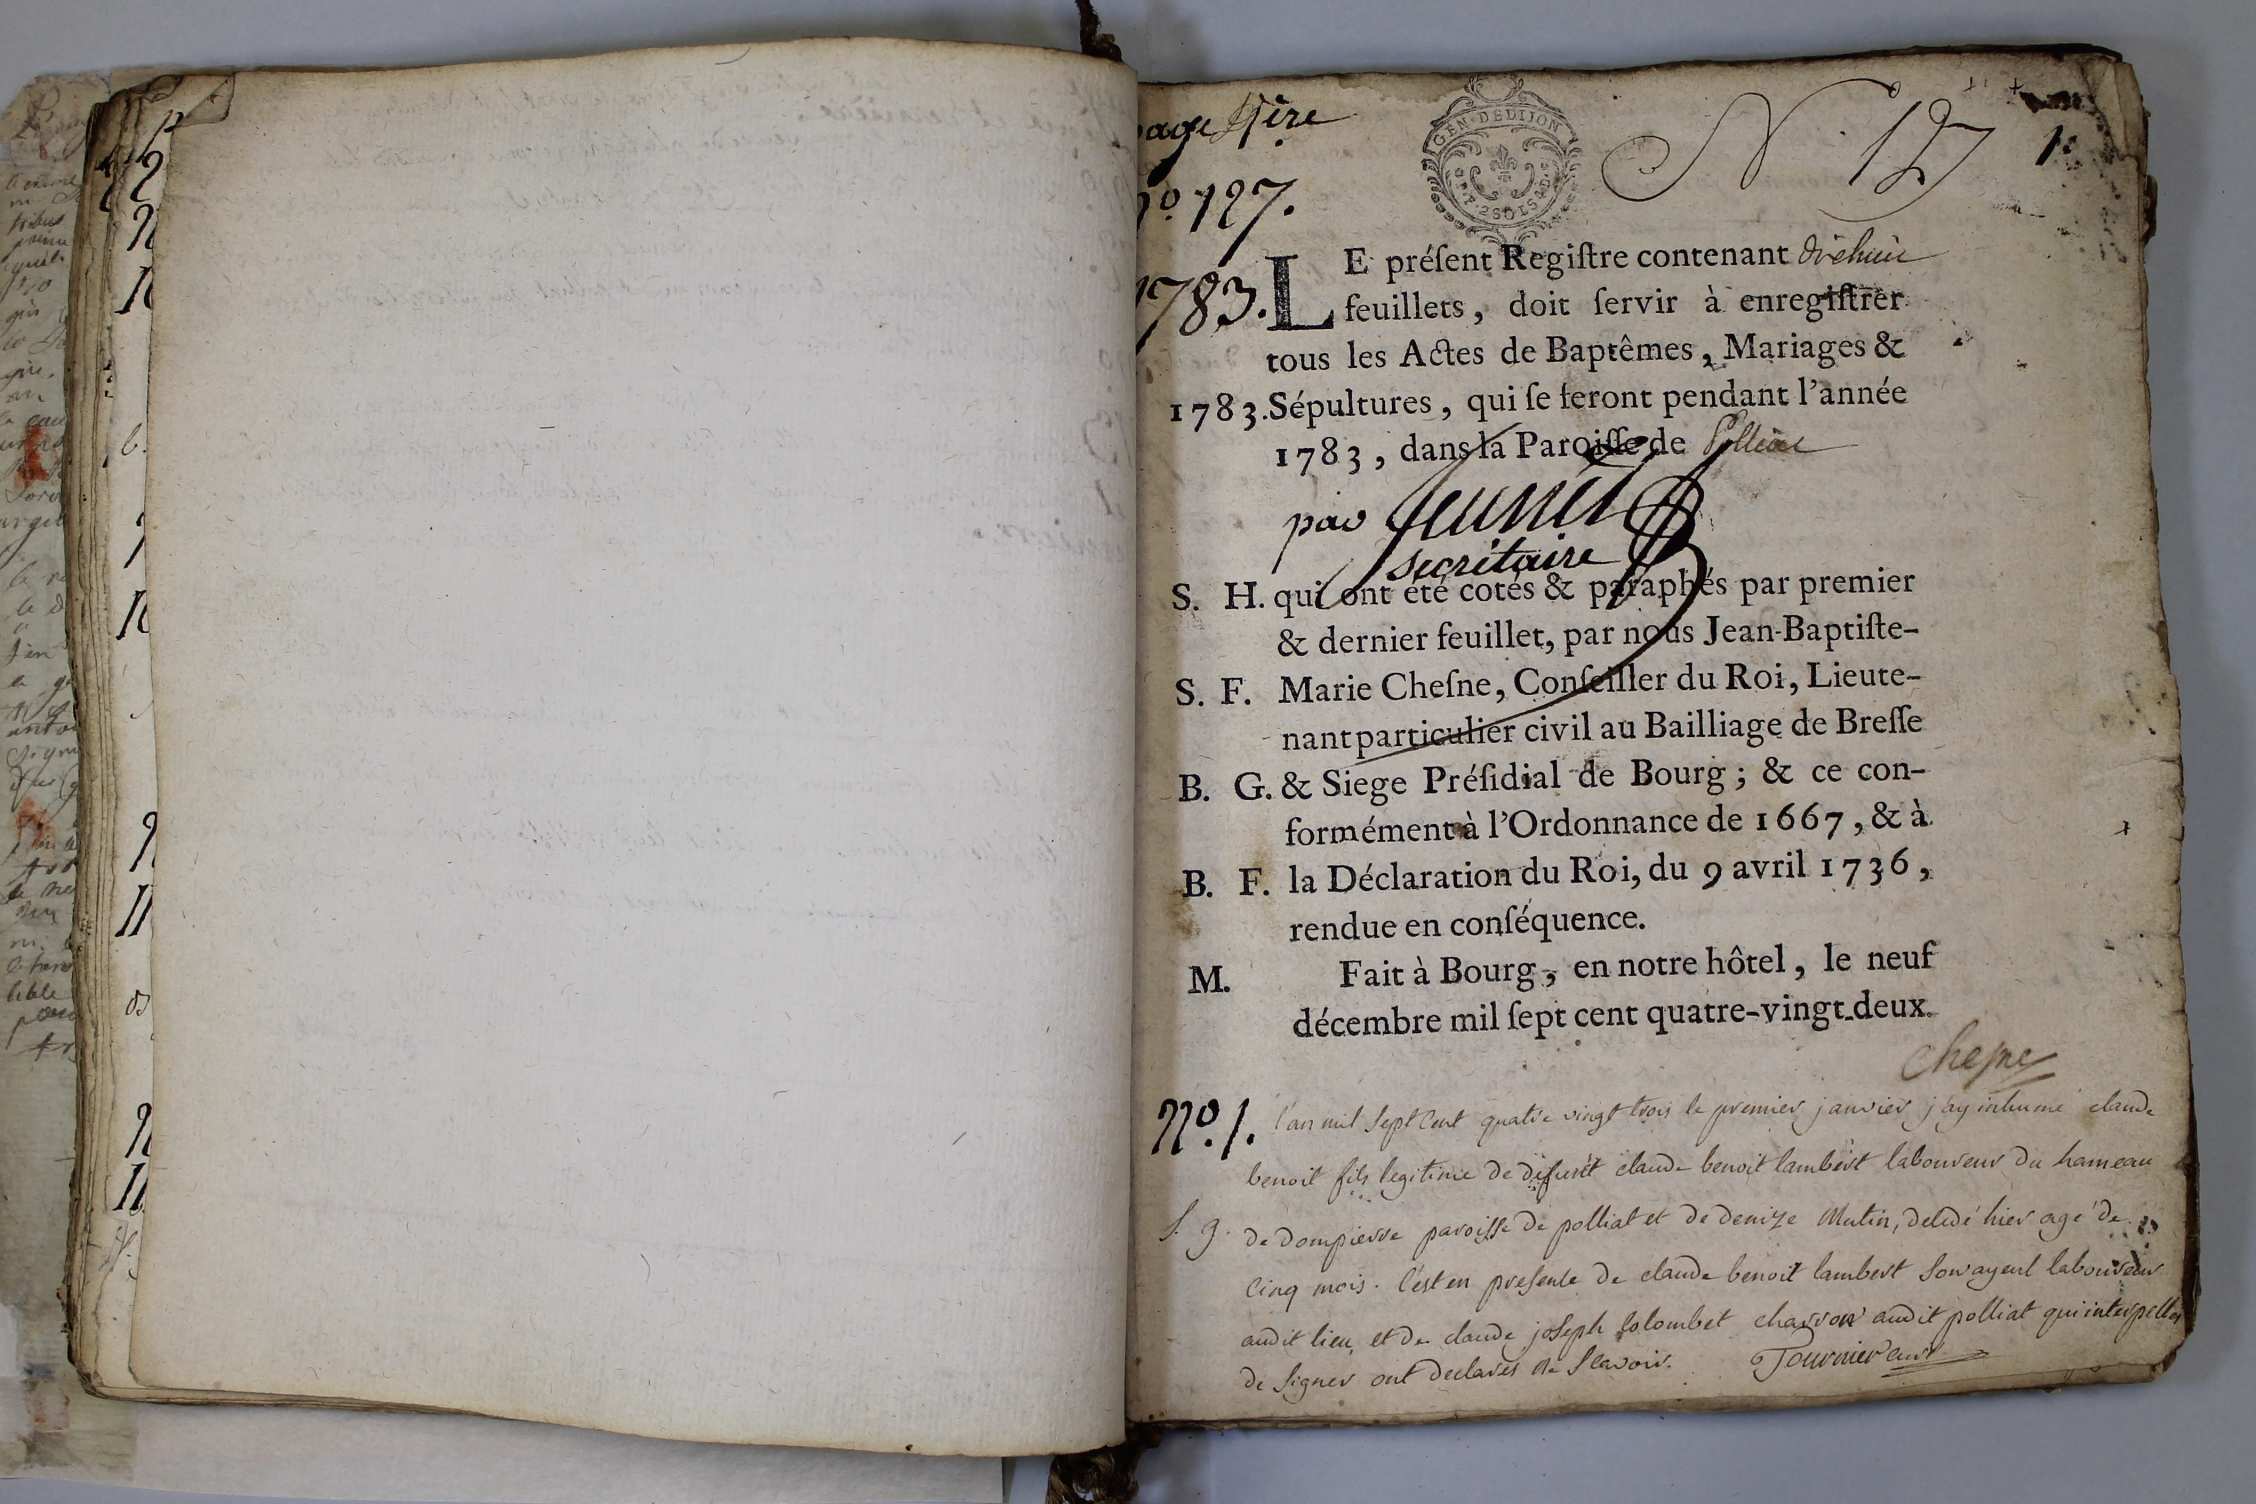 page 1ère
GEN·DEDIJON
2SOLS
N 127
1
no. 127.
1783.
LE préſent Regiſtre contenant dixhuit
feuillets, doit ſervir à enregiſtrer
tous les Actes de Baptêmes, Mariages &
1783. Sépultures, qui ſe feront pendant l'année
1783, dans la Paroiſſe de Polliat
par Jeunet
secrétaire
S. H. qui ont été cotés & paraphés par premier
& dernier feuillet, par nous Jean-Baptiſte-
S. F. Marie Cheſne, Conſeiller du Roi, Lieute-
nant particulier civil au Bailliage de Breſſe
B. G. & Siege Préſidial de Bourg ; & ce con-
formément à l'Ordonnance de 1667, & à
B. F. la Déclaration du Roi, du 9 avril 1736,
rendue en conſéquence.
M. Fait à Bourg, en notre hôtel, le neuf
décembre mil ſept cent quatre-vingt-deux.
Chesne
No. 1. l'an mil sept cent quatre vingt trois le premier janvier j'ay inhumé claude
benoit fils legitime de defunt claude benoit lambert laboureur du hameau
S. g. de dompierre paroisse de polliat et de denize Mutin, decedé hier agé de
cinq mois. c'est en presence de claude benoit lambert son ayeul laboureur
audit lieu et de claude joseph colombet charron audit polliat qui interpellés
de signer ont declarés ne scavoir. Tournier curé